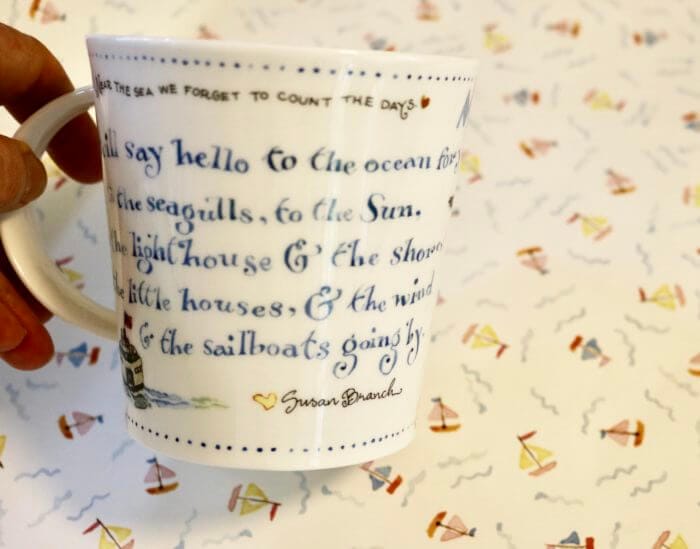 NEAR THE SEA WE FORGET TO COUNT THE DAYS.
say hello to the ocean for
the seagulls, to the Sun.
the lighthouse & the shore
little houses, & the wind
& the sailboats going by.
Susan Branch